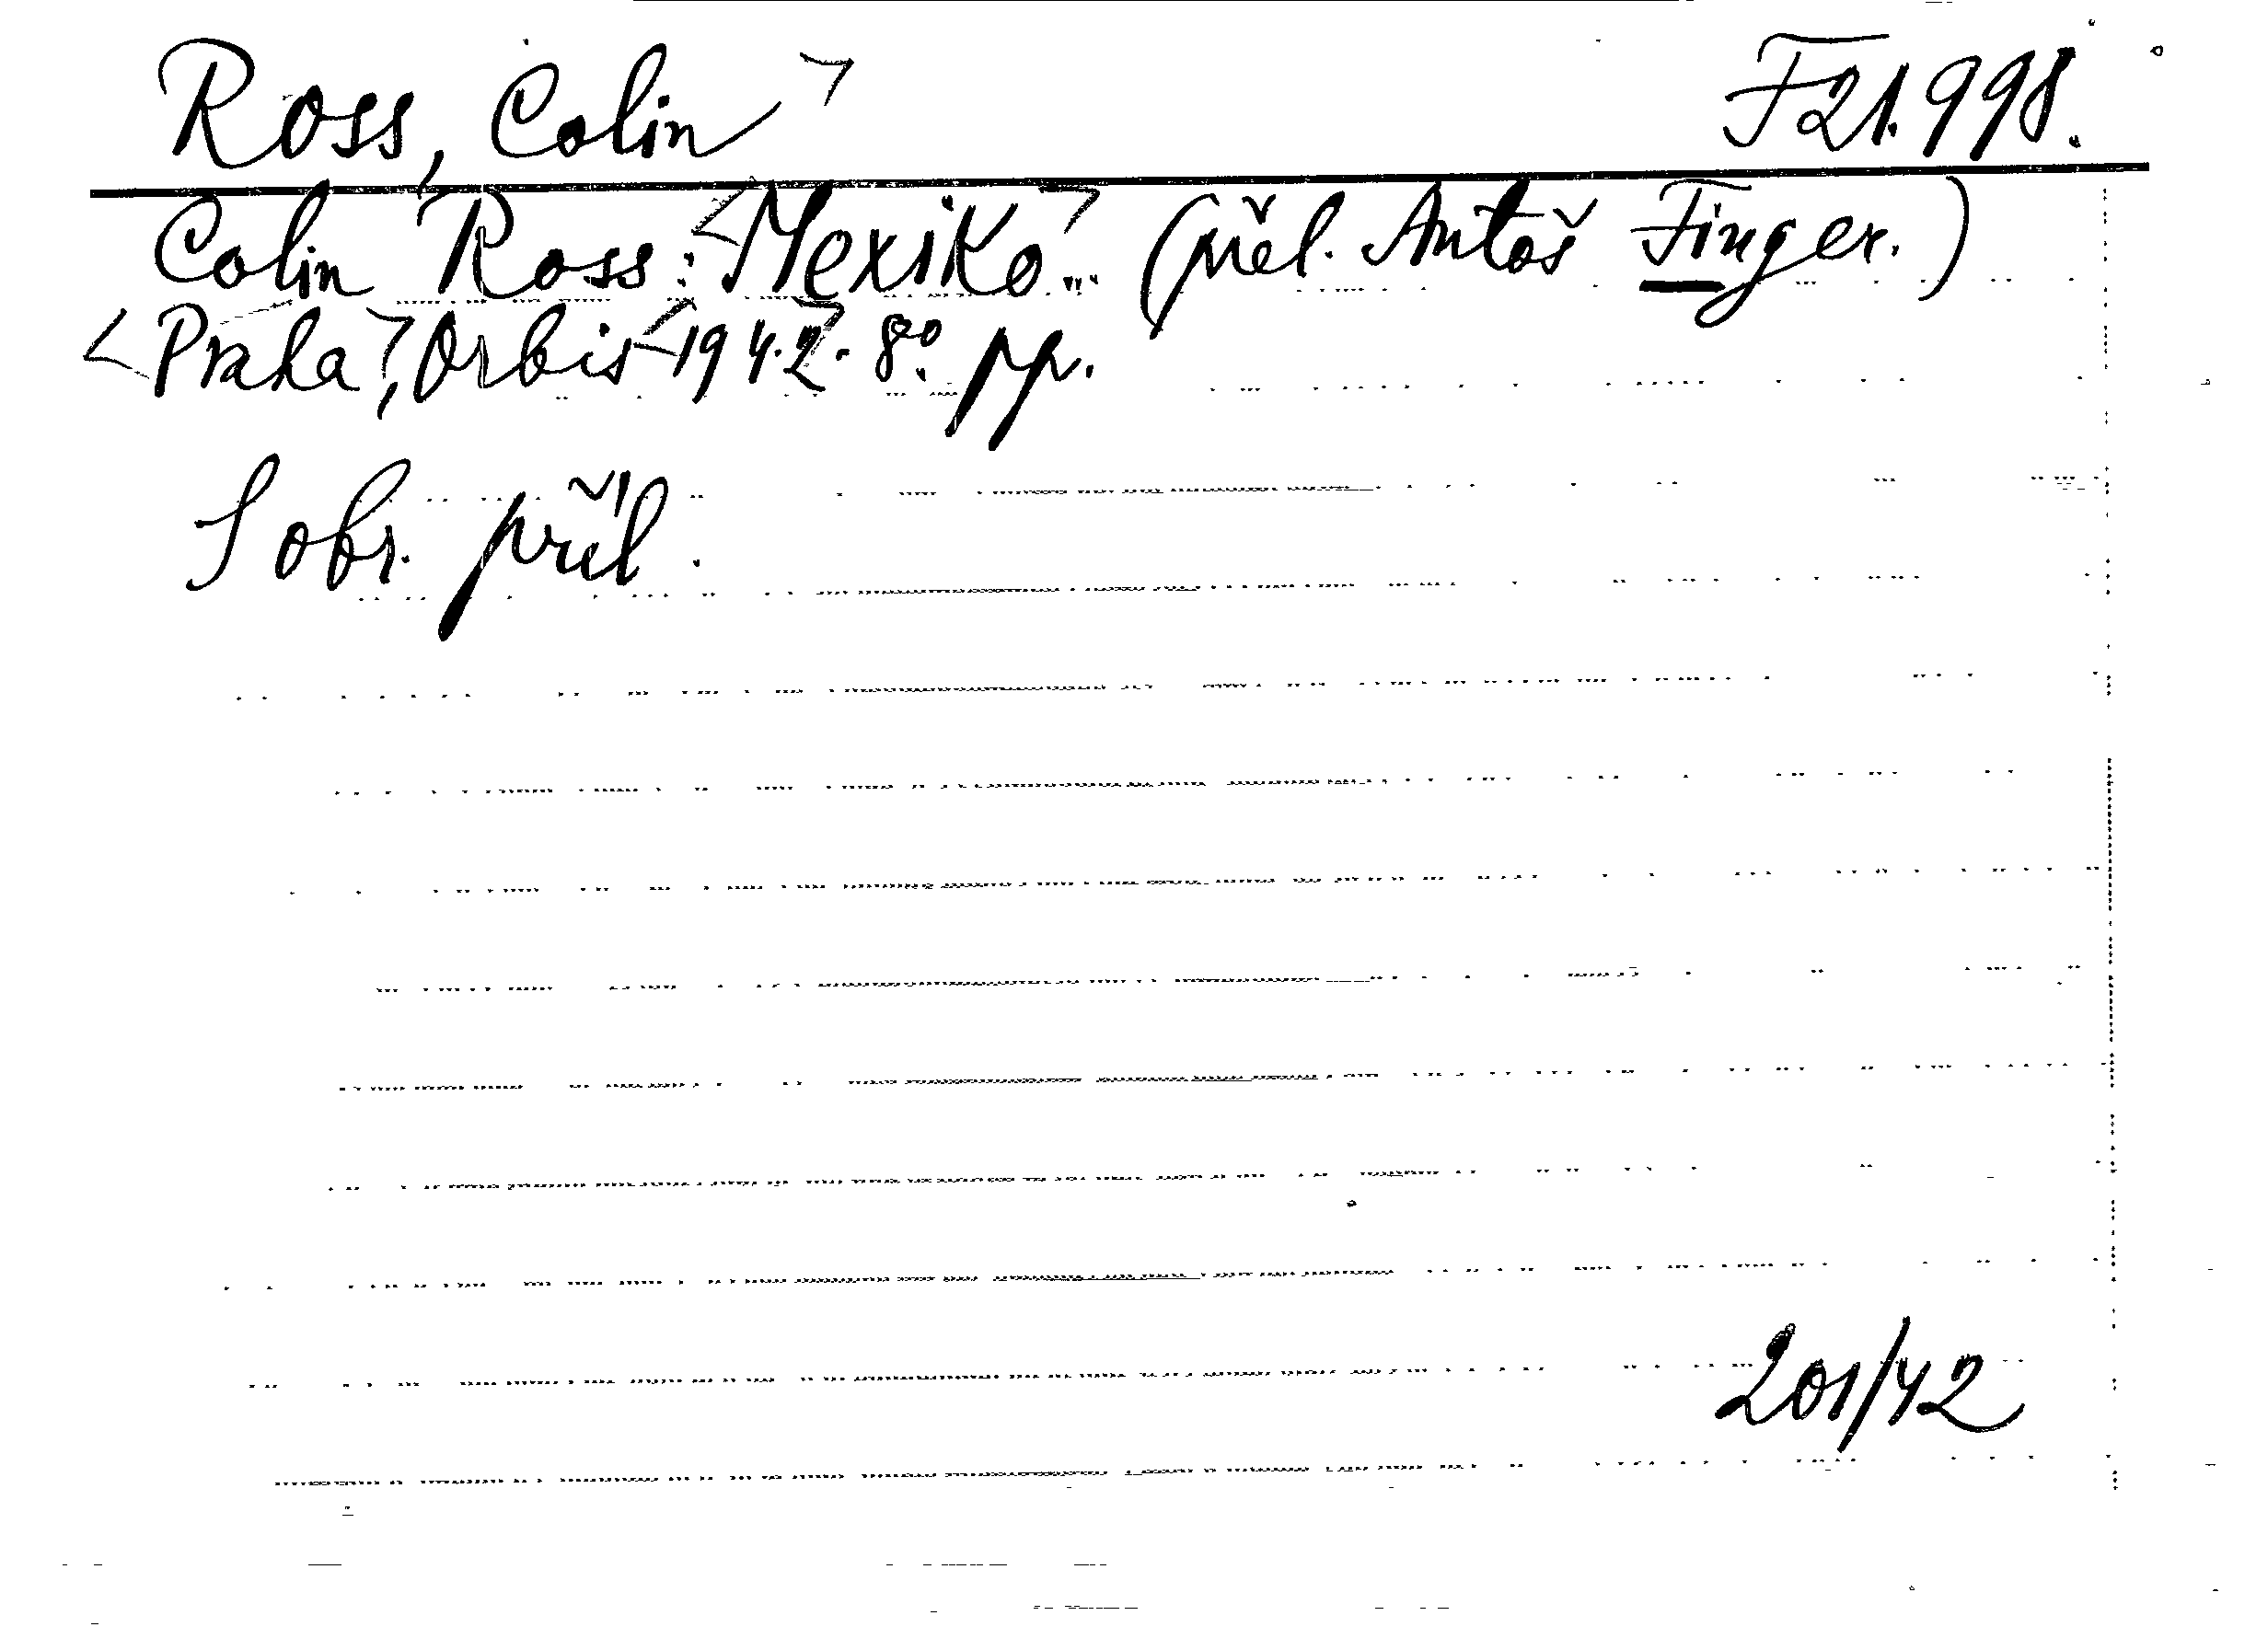 Ross, Colin> F 21.998.
Colin Ross: <Mexiko>... (přel. Antoš Finger.)
<Praha>, Orbis <1942>. 8°. pp.
S obr. příl.
201/42